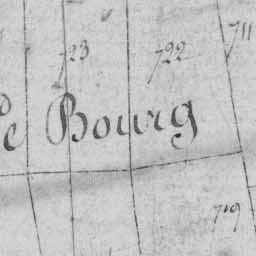 711
723
722
le Bourg
719